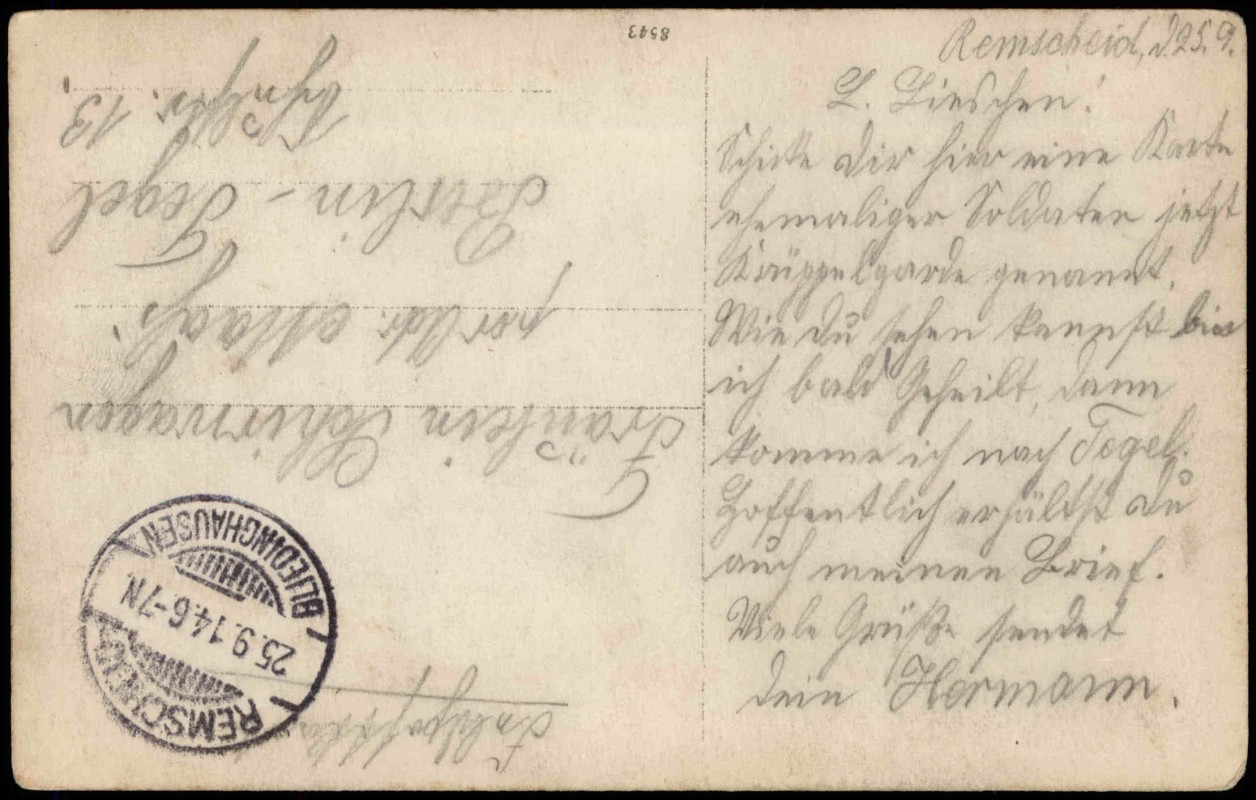 8543
Remscheid, d. 25.9.
L. Lieschen!
Schicke dir hier eine Karte
ehemaliger Soldaten jetzt
Krüppelgarde genannt.
Wie du sehen kannst bin
ich bald Geheilt, dann
komme ich nach Tegel.
Hoffentlich erhältst du
auch meinen Brief.
Viele Grüße sendet
dein Hermann.
Feldpostkarte
Fräulein Schirrwagen
per Adr. Maaß.
Berlin-Tegel
13.
REMSCHEID
25.9.14.6-7N.
BLIEDINGHAUSEN